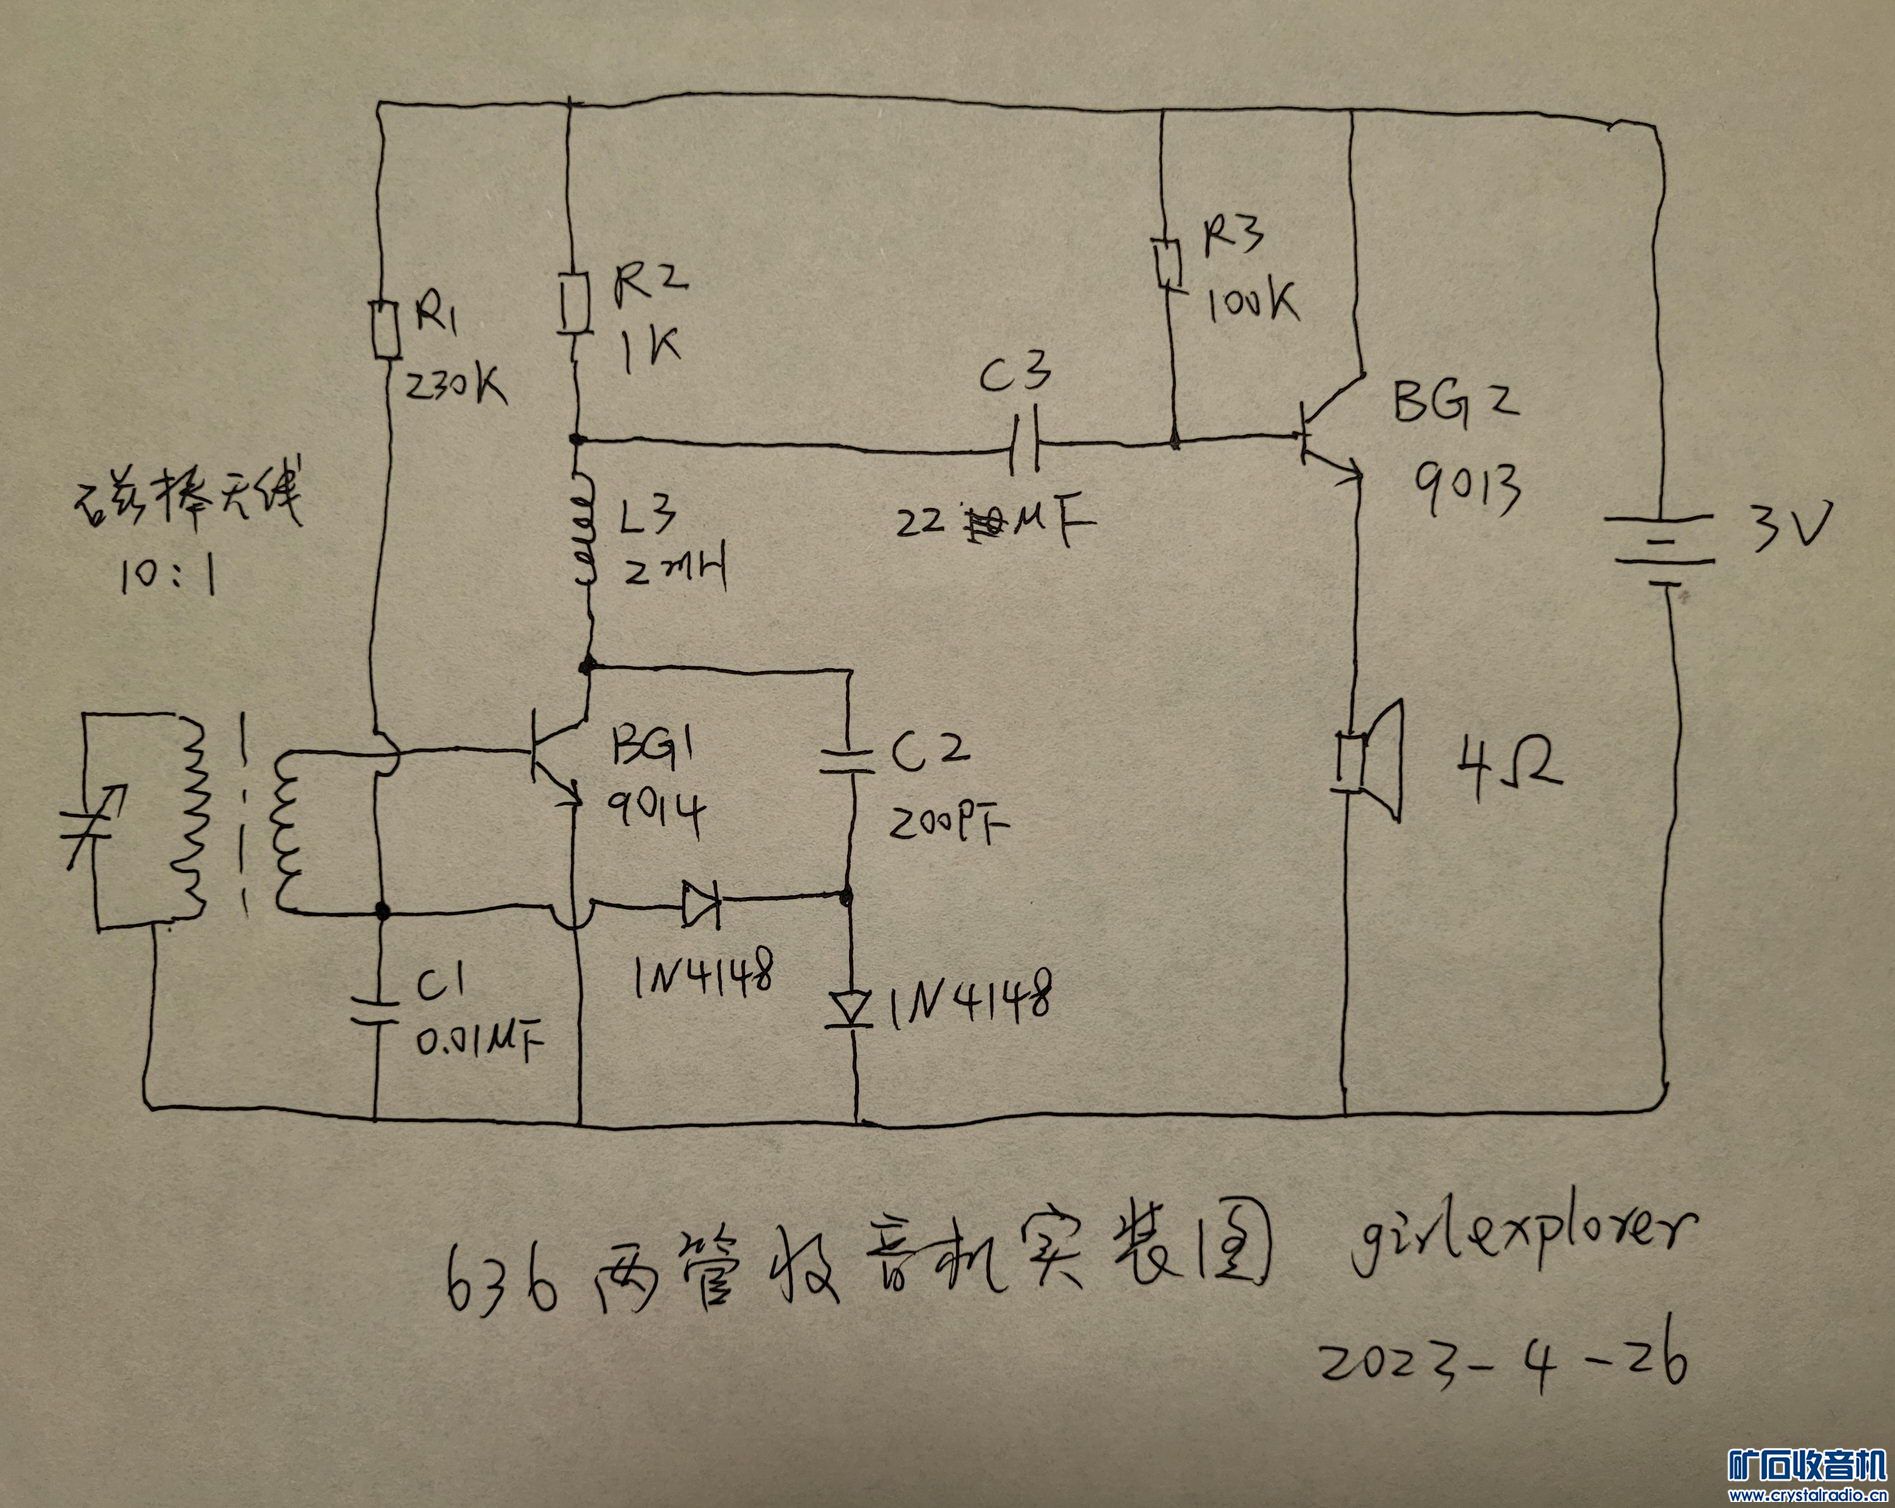 R1
230K
R2
1K
R3
100K
C3
22 μF
BG2
9013
3V
磁棒天线
10:1
L3
2mH
BG1
9014
C2
200PF
4Ω
C1
0.01μF
1N4148
1N4148
636两管收音机实装图 girlexplorer
2023-4-26
矿石收音机
www.crystalradio.cn